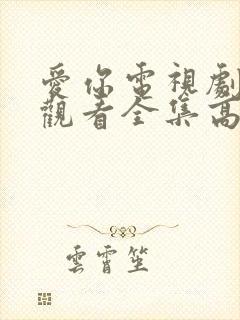 愛你電視劇
觀看全集高
雲霄笙